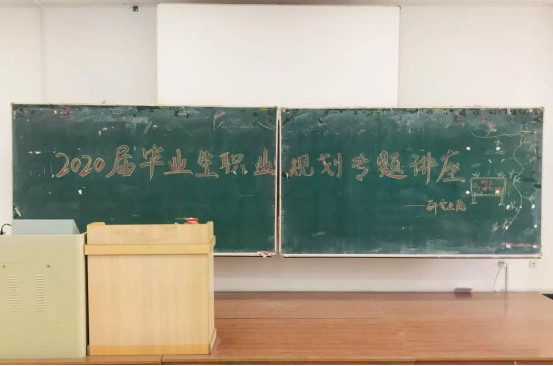 2020届毕业生职业规划专题讲座